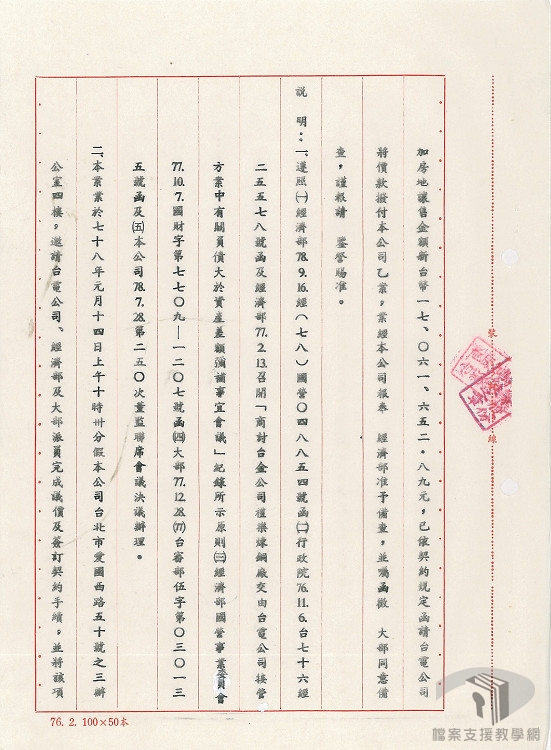 加房地讓售金額新台幣一七、〇六一、六五二．八九元，已依契約規定函請台電公司
將價款撥付本公司乙案，業經本公司報奉　經濟部准予備查，並囑函徵　大部同意備
查，謹報請　鑒詧賜准。
說　明：一、遵照㈠經濟部78.9.16.經（七八）國營〇四八八五四號函㈡行政院76.11.6.台七十六經
二五五七八號函及經濟部77.2.13.召開「商討台金公司禮樂煉銅廠交由台電公司接管
方案中有關負債大於資產差額彌補事宜會議」紀錄所示原則㈢經濟部國營事業委員會
77.10.7.國財字第七七〇九—一二〇七號函㈣大部77.12.28.㈦台審部伍字第〇三〇一三
五號函及㈤本公司78.7.28.第二五〇次董監聯席會議決議辦理。
二、本案業於七十八年元月十四日上午十時卅分假本公司台北市愛國西路五十號之三辦
公室四樓，邀請台電公司、經濟部及大部派員完成議價及簽訂契約手續，並將該項
裝
線
76. 2. 100×50本
檔案支援教學網